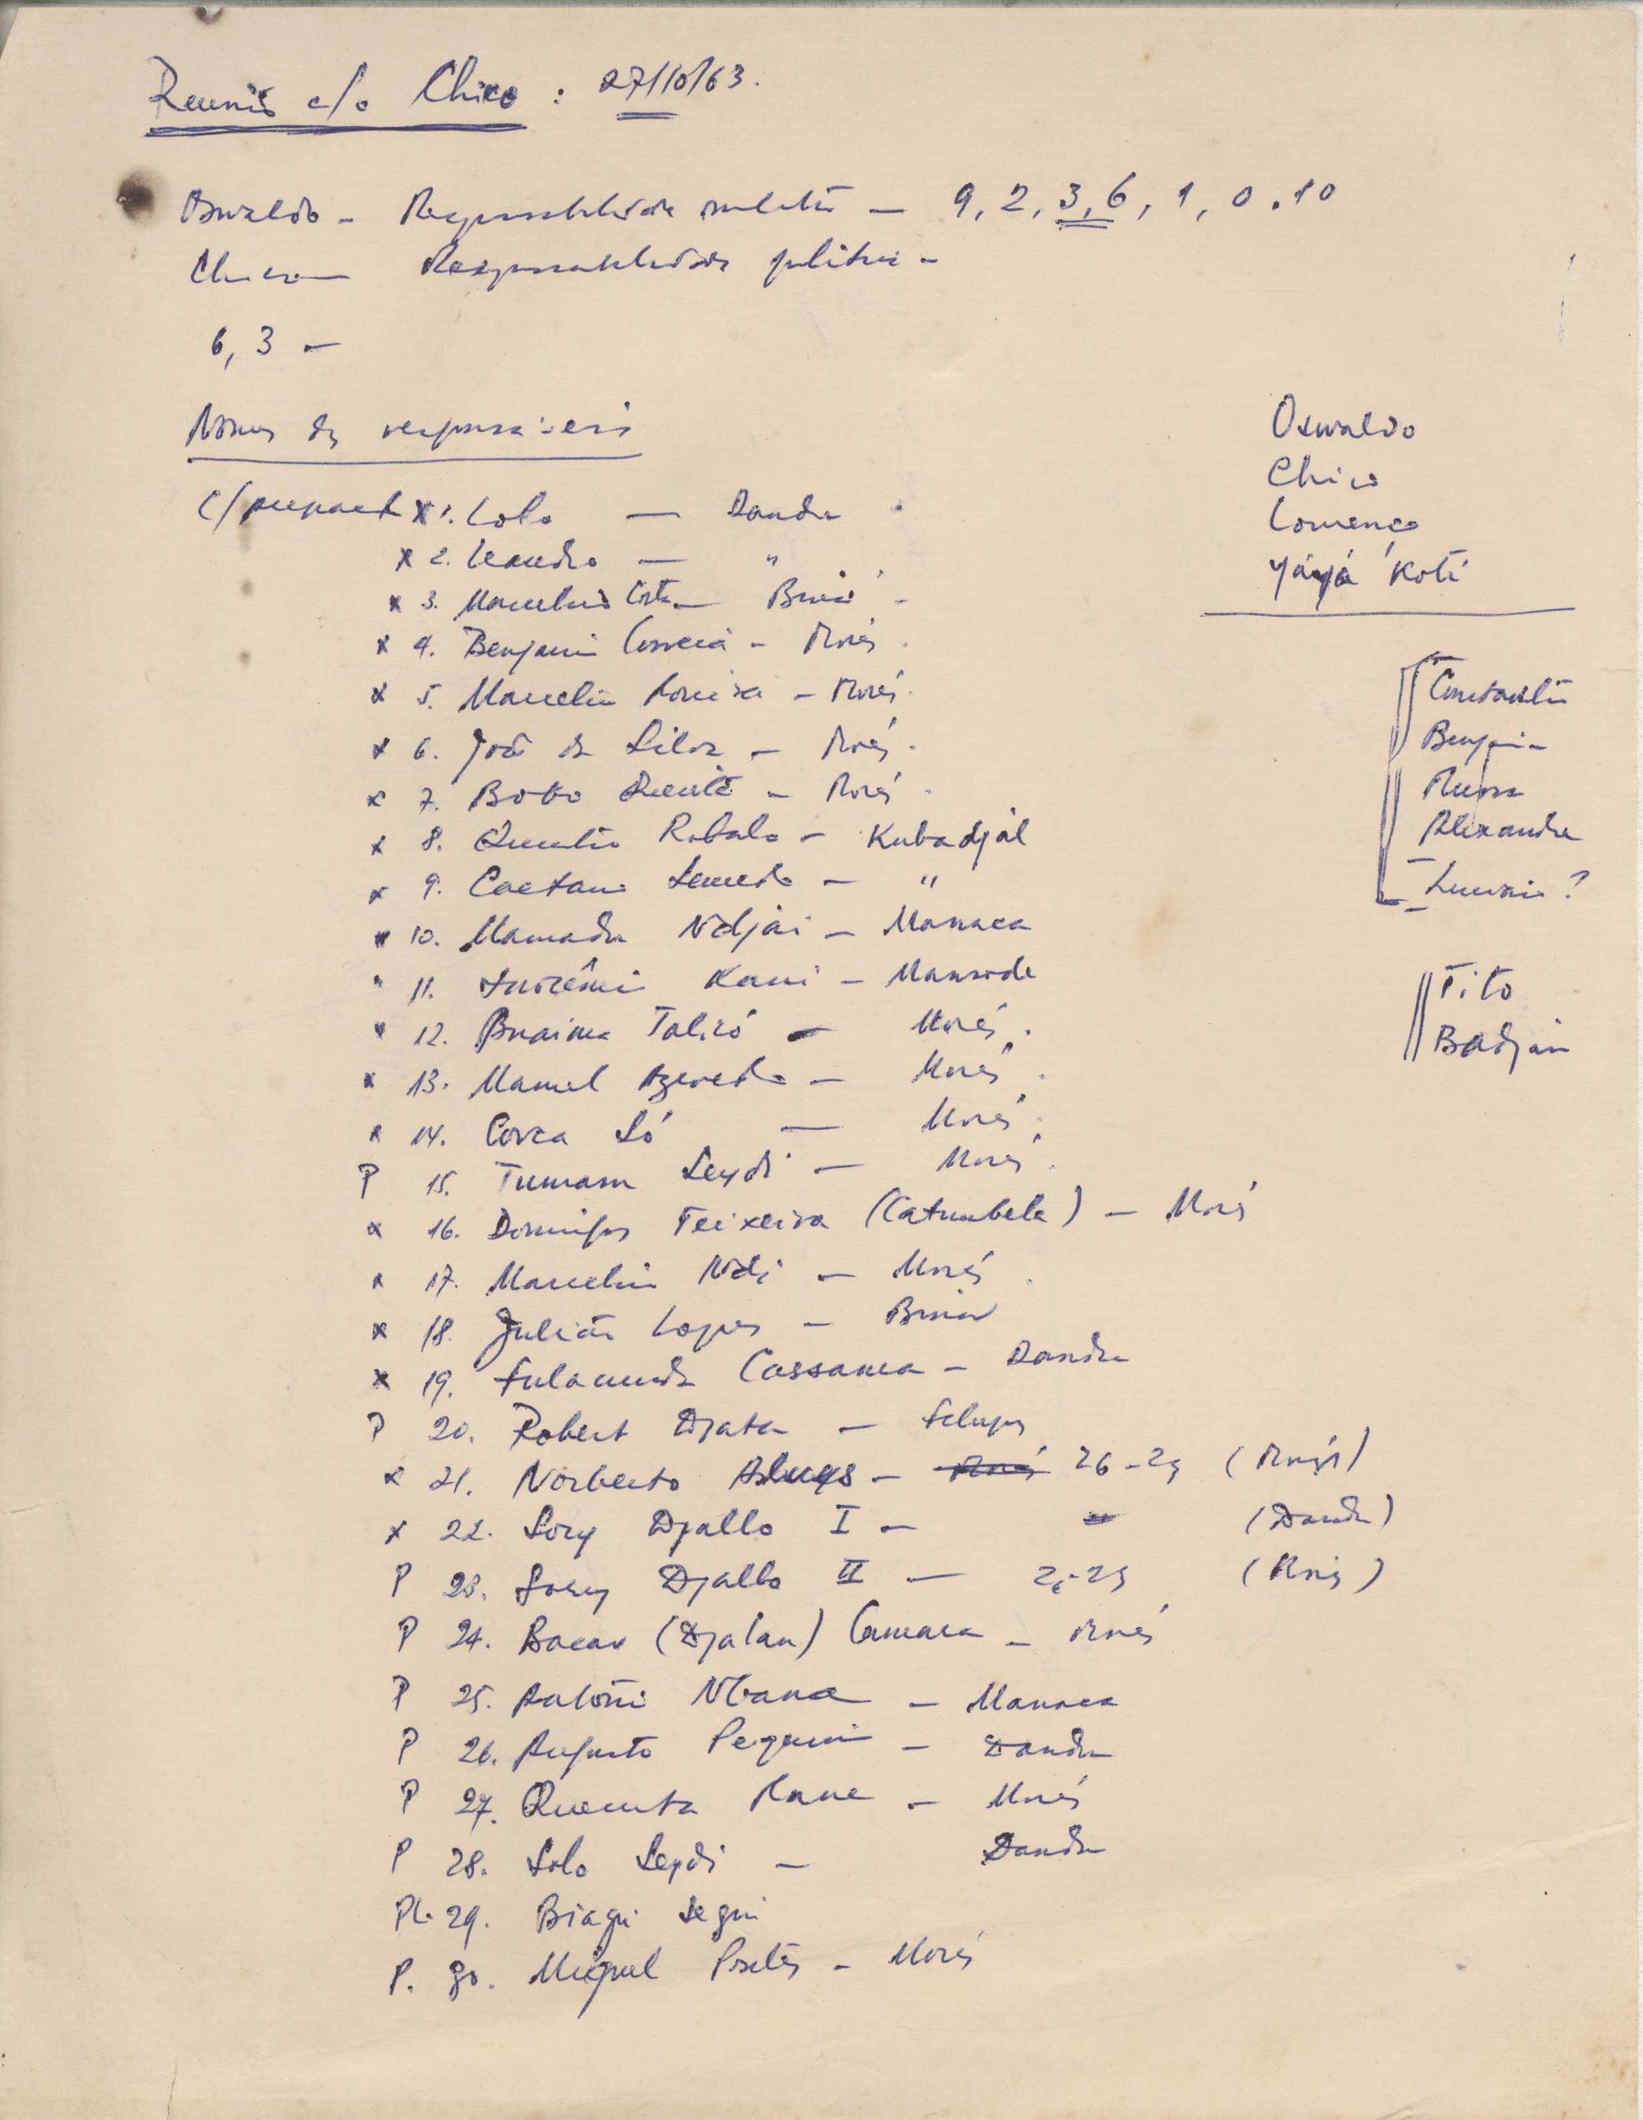 Reunião c/o Chico : 27/10/63.
Osvaldo - Responsabilidade militar - 9, 2, 3, 6, 1, 0, 10
Chico - Responsabilidade política -
6, 3 -
Nomes dos responsáveis
C/ X 1. Lolo - Dandu
X 2. Leandro - "
X 3. Marcelino Costa - Binar
X 4. Benjamim Correia - Morés
X 5. Marcelin - Morés
X 6. João da Silva - Morés
X 7. Bobo - Morés
X 8. Quintino Robalo - Kubadjal
X 9. Caetano Semedo - "
10. Mamadu Ndjai - Manaca
11. Inocêncio Kani - Mansode
12. Braima - Morés
X 13. Manuel Azevedo - Morés
X 14. Corca Só - Morés
P 15. Tumane Seydi - Morés
X 16. Domingos Teixeira (Catumbela) - Morés
X 17. Marcelin Ndi - Morés
X 18. Julião Lopes - Binar
X 19. Fulamudu Cassama - Dandu
P 20. Robert Djata - Felupes
X 21. Norberto Alves - Morés 26-29 (Morés)
X 22. Sory Djallo I - " (Dandu)
P 23. Sory Djallo II - 26-29 (Morés)
P 24. Bacar (Djalan) Camara - Morés
P 25. António Mbana - Manaca
P 26. Augusto Pequeni - Dandu
P 27. Quecuta Mane - Morés
P 28. Solo Seydi - Dandu
Pl. 29. Biagui Segui
P. 30. Miguel - Morés
Oswaldo
Chico
Lourenço
Yáyá Koté
Constantin
Benjamin
Alexandre
Tito
Badjan